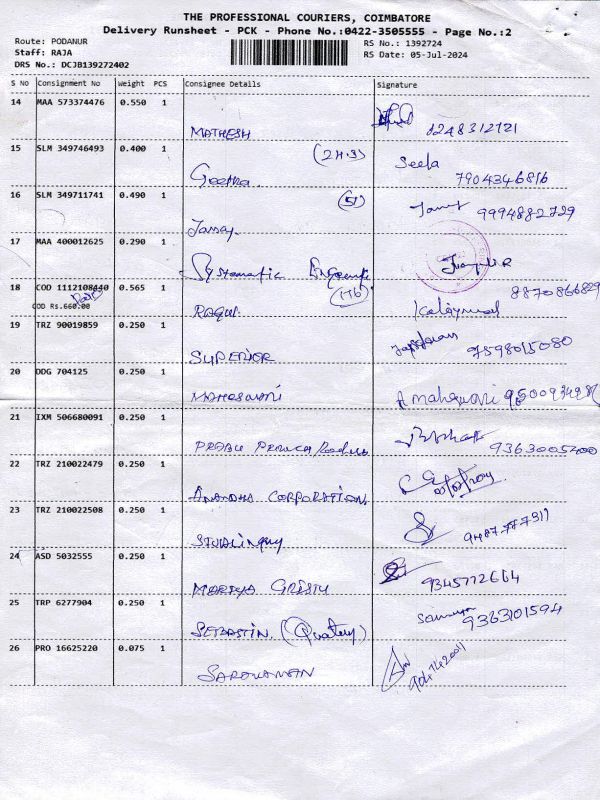 THE PROFESSIONAL COURIERS, COIMBATORE
Delivery Runsheet - PCK - Phone No.:0422-3505555 - Page No.:2
Route: PODANUR
Staff: RAJA
DRS No.: DCJB139272402
RS No.: 1392724
RS Date: 05-Jul-2024
S No Consignment No Weight PCS Consignee Details Signature
14 MAA 573374476 0.550 1
MATHESH 8248312121
15 SLM 349746493 0.400 1
(2H.3) Seela
Geetha. 7904346816
16 SLM 349711741 0.490 1
(51) 9994882729
17 MAA 400012625 0.290 1
Systematic
(176)
18 COD 1112108440 0.565 1
COD Rs.660.00
8870866829
19 TRZ 90019859 0.250 1
SUPERIOR 7598015080
20 DDG 704125 0.250 1
MAHESWARI A maheswari
21 IXM 506680091 0.250 1
PRABU 9363005400
22 TRZ 210022479 0.250 1
ANANDHA CORPORATION
23 TRZ 210022508 0.250 1
9487777311
24 ASD 5032555 0.250 1
9345772664
25 TRP 6277904 0.250 1
SEBASTIN. 9363101594
26 PRO 16625220 0.075 1
SARAVANAN